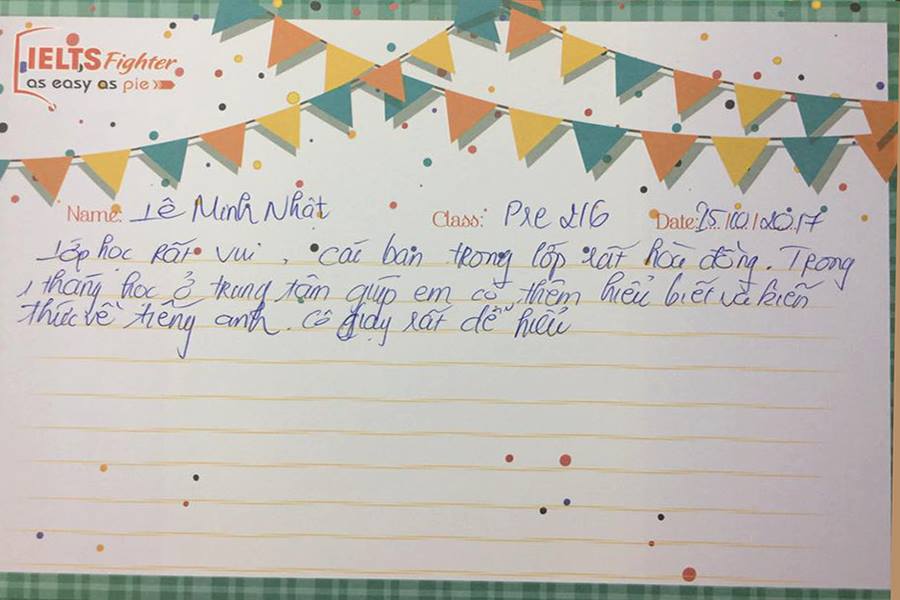 IELTS Fighter
as easy as pie
Name: Lê Minh Nhật Class: Pre 216 Date: 25/10/2017
Lớp học rất vui, các bạn trong lốp rất hoà đồng. Trong
1 tháng học ở trung tâm giúp em có thêm hiểu biết và kiến
thức về tiếng anh. Cô giạy rất dể hiểu